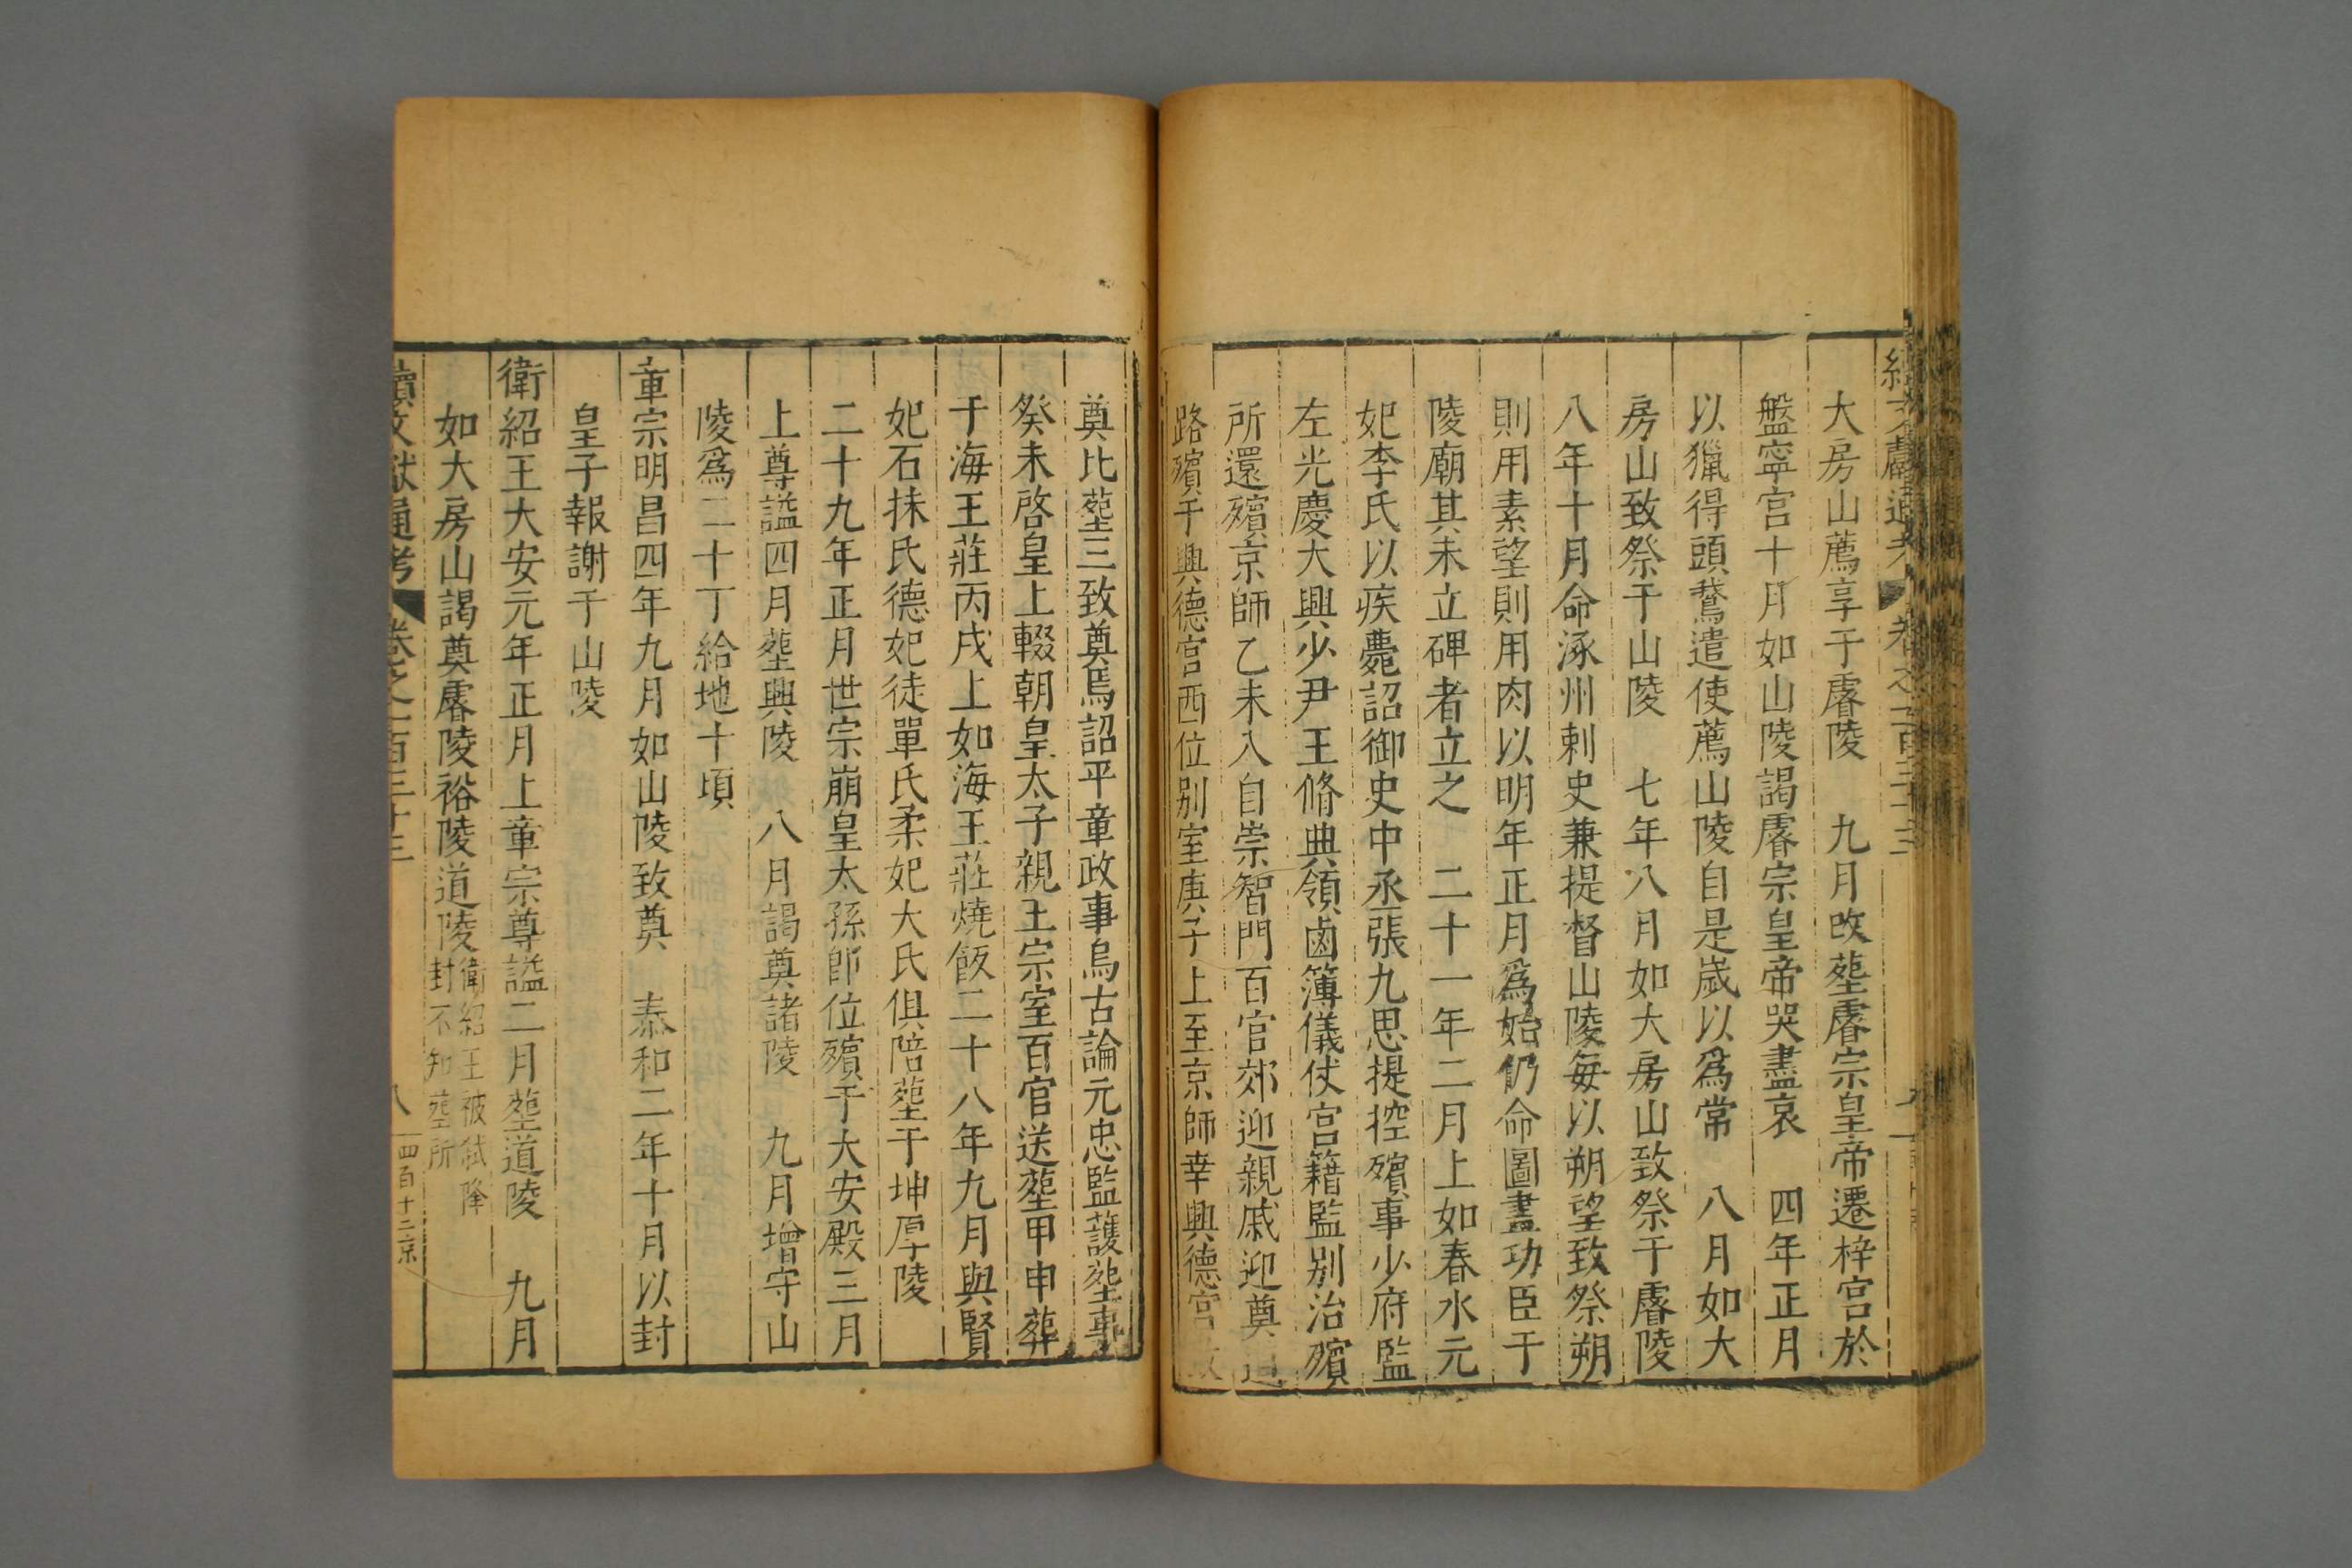 大房山薦享于睿陵　九月改塟睿宗皇帝遷梓宫於
盤寧宫十月如山陵謁睿宗皇帝哭盡哀　四年正月
以獵得頭鵞遣使薦山陵自是歲以爲常　八月如大
房山致祭于山陵　七年八月如大房山致祭于睿陵
八年十月命涿州剌史兼提督山陵每以朔望致祭朔
則用素望則用肉以明年正月爲始仍命圖畫功臣于
陵廟其未立碑者立之　二十一年二月上如春水元
妃李氏以疾薨詔御史中丞張九思提控殯事少府監
左光慶大興少尹王脩典領鹵簿儀仗宫籍監別治殯
所還殯京師乙未入自崇智門百官郊迎親戚迎奠
路殯于興德宫西位別室庚子上至京師幸興德宫
奠比塟三致奠焉詔平章政事烏古論元忠監護塟事
癸未啓皇上輟朝皇太子親王宗室百官送塟甲申葬
于海王莊丙戌上如海王莊燒飯二十八年九月與賢
妃石抹氏德妃徒單氏柔妃大氏俱陪塟于坤厚陵
二十九年正月世宗崩皇太孫卽位殯于大安殿三月
上尊謚四月塟興陵　八月謁奠諸陵　九月增守山
陵爲二十丁給地十頃
章宗明昌四年九月如山陵致奠　泰和二年十月以封
皇子報謝于山陵
衛紹王大安元年正月上章宗尊謚二月塟道陵　九月
如大房山謁奠睿陵裕陵道陵衛紹王被弑降
封不知塟所
續文獻通考　卷之一百三十三　八　四百十二京